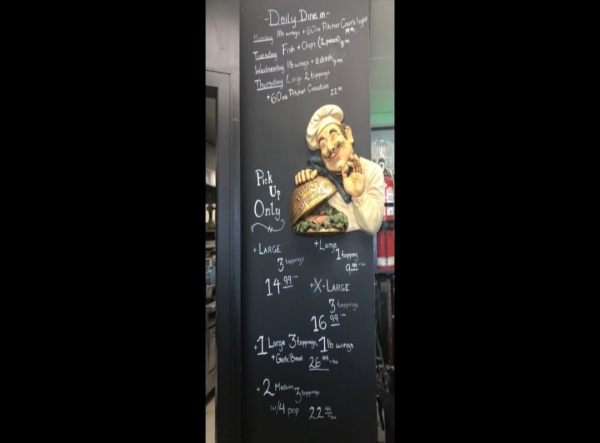 -Daily Dine in-
Monday 1lb wings + 60oz Pitcher Coor's light
Tuesday Fish + Chips (2 pieces)
Wednesday 1lb wings +
Thursday Large 2 toppings
+ 60oz Pitcher Canadian 22.00
Pick
Up
Only
+ LARGE
3 toppings
14.99
+ Large 1 topping
9.99
+ X-LARGE
3 toppings
16.99
+ 1 Large 3 toppings, 1 lb wings
+ Garlic Bread 26.00
+ 2 Medium 3 toppings
w/4 pop 22.99